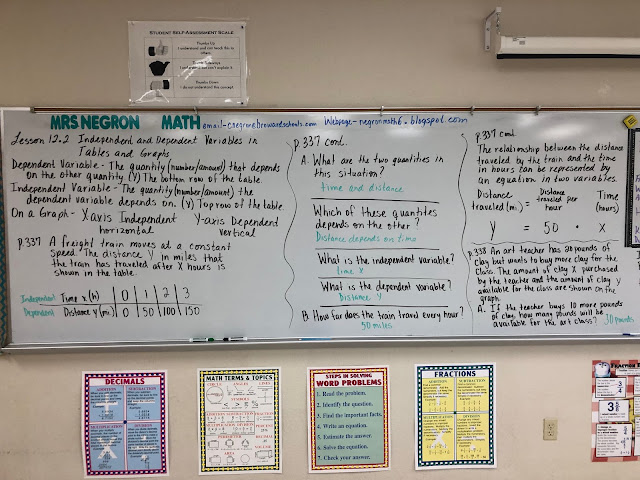 STUDENT SELF-ASSESSMENT SCALE
Thumbs Up
I understand and can teach this to others.
Thumbs Sideways
Thumbs Down
I do not understand this concept
MRS NEGRON MATH
Webpage-negronmath6.blogspot.com
Lesson 12.2 Independent and Dependent Variables in
Tables and Graphs
Dependent Variable - The quantity (number/amount) that depends
on the other quantity (Y) The bottom row of the table.
Independent Variable - The quantity (number/amount) the
dependent variable depends on. (x) Top row of the table.
On a Graph - X axis Independent Y-axis Dependent
horizontal vertical
p.337 A freight train moves at a constant
speed. The distance Y in miles that
the train has traveled after X hours is
shown in the table.
Independent Time x (h) 0 1 2 3
Dependent Distance y (mi) 0 50 100 150
p.337 cont.
A. What are the two quantities in
this situation?
time and distance
Which of these quantites
depends on the other?
Distance depends on time
What is the independent variable?
time x
What is the dependent variable?
Distance y
B. How far does the train travel every hour?
50 miles
p.337 cont.
The relationship between the distance
traveled by the train and the time
in hours can be represented by
an equation in two variables.
Distance traveled (mi.) = Distance traveled per hour · Time (hours)
Y = 50 · X
p.338 An art teacher has 20 pounds of
clay but wants to buy more clay for the
class. The amount of clay x purchased
by the teacher and the amount of clay y
available for the class are shown on the
graph.
A. If the teacher buys 10 more pounds
of clay, how many pounds will be
available for the art class? 30 pounds
DECIMALS
ADDITION SUBTRACTION
MULTIPLICATION DIVISION
MATH TERMS & TOPICS
ANGLES LINES
PERIMETER
AREA
STEPS IN SOLVING
WORD PROBLEMS
1. Read the problem.
2. Identify the question.
3. Find the important facts.
4. Write an equation.
5. Estimate the answer.
6. Solve the equation.
7. Check your answer.
FRACTIONS
ADDITION SUBTRACTION
MULTIPLICATION DIVISION